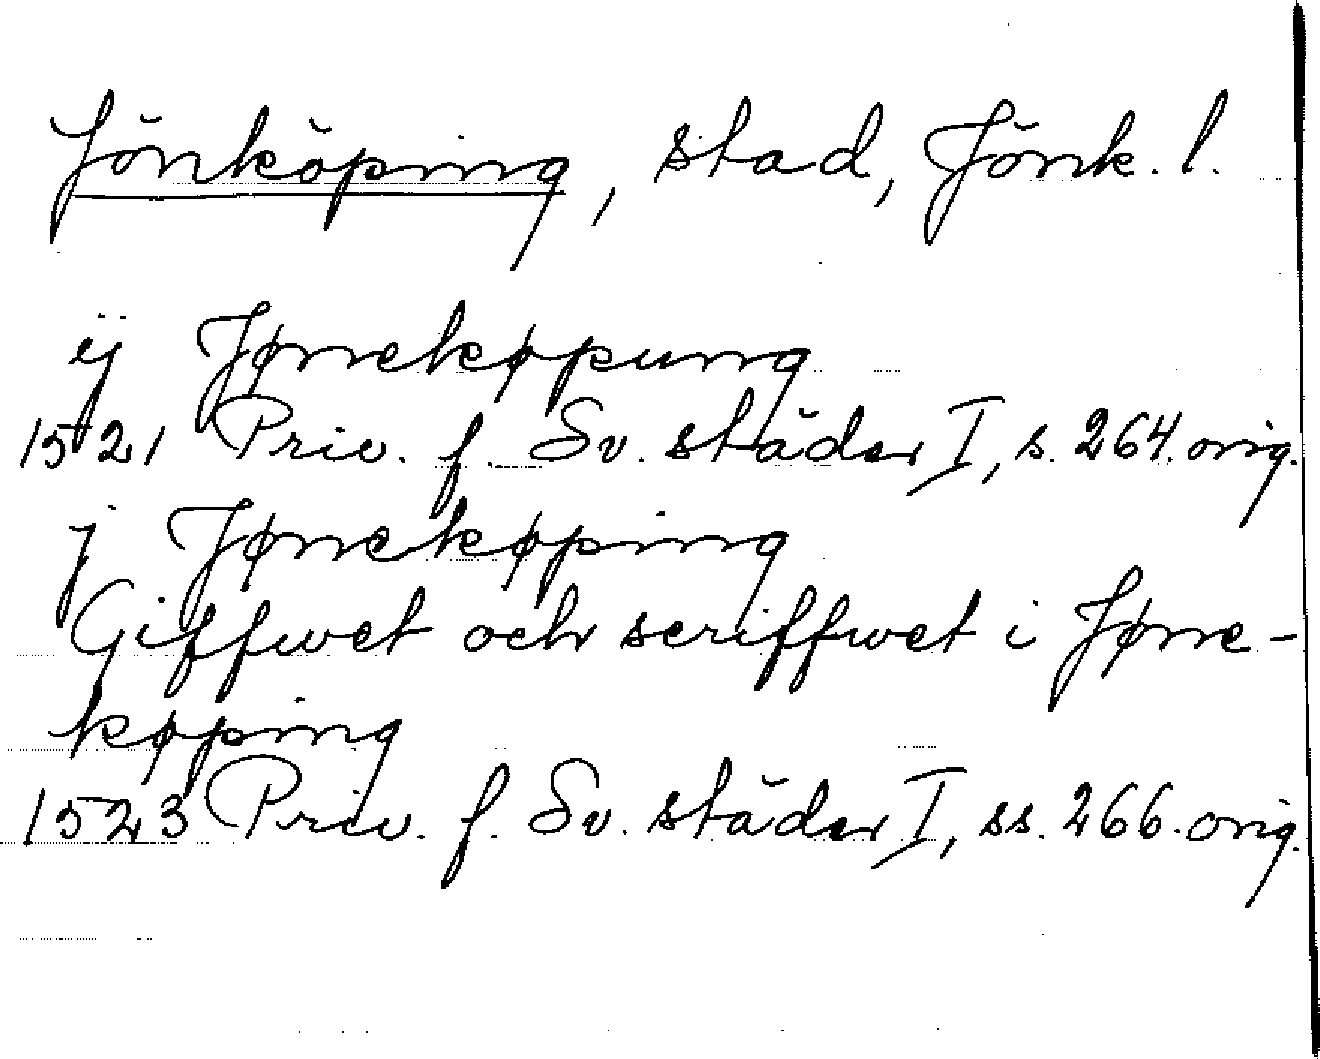 Jönköping, stad, Jönk. l.
ÿ Jønekøpung
1521 Priv. f. Sv. städer I, s. 264. orig.
j Jønekøping
Giffwet och scriffwet i Jøne-
køping
1523 Priv. f. Sv. städer I, ss. 266. orig.